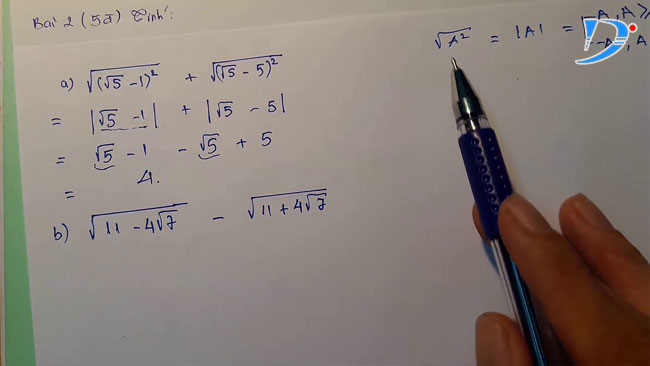 Bài 2 (5đ) Tính:
a) √(√5 - 1)² + √(√5 - 5)²
= |√5 - 1| + |√5 - 5|
= √5 - 1 - √5 + 5
= 4.
b) √11 - 4√7 - √11 + 4√7
√A² = |A| = A, A ≥
-A, A